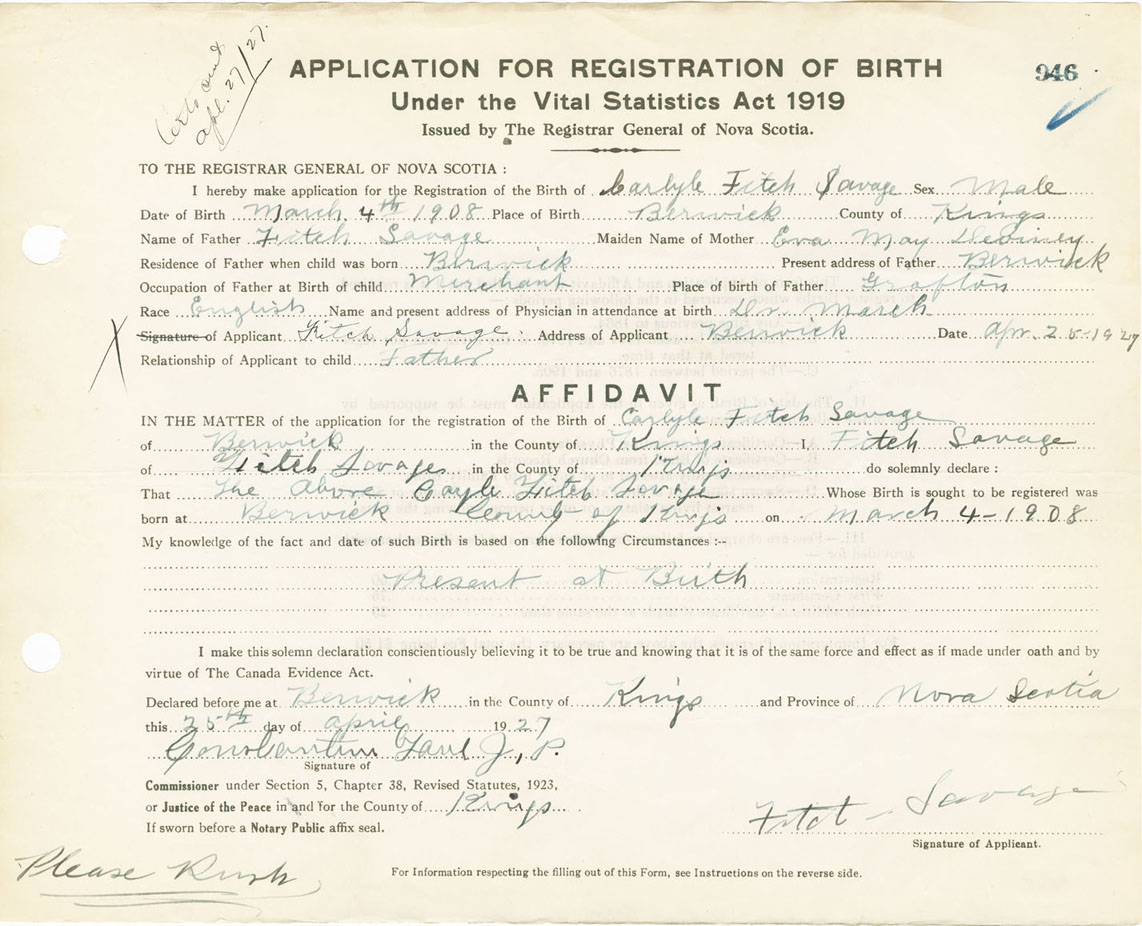 apl. 27/27.
APPLICATION FOR REGISTRATION OF BIRTH
946
Under the Vital Statistics Act 1919
Issued by The Registrar General of Nova Scotia.
TO THE REGISTRAR GENERAL OF NOVA SCOTIA :
I hereby make application for the Registration of the Birth of Carlyle Fitch Savage Sex Male
Date of Birth March 4th 1908 Place of Birth Berwick County of Kings
Name of Father Fitch Savage Maiden Name of Mother Eva May
Residence of Father when child was born Berwick Present address of Father Berwick
Occupation of Father at Birth of child Merchant Place of birth of Father Grafton
Race English Name and present address of Physician in attendance at birth Dr. March
Signature of Applicant Fitch Savage. Address of Applicant Berwick Date Apr. 25-1927
X
Relationship of Applicant to child Father
AFFIDAVIT
IN THE MATTER of the application for the registration of the Birth of Carlyle Fitch Savage
of Berwick in the County of Kings I, Fitch Savage
of Fitch Savage in the County of Kings do solemnly declare :
That The Above Cayle Fitch Savage Whose Birth is sought to be registered was
born at Berwick County of Kings on March 4-1908
My knowledge of the fact and date of such Birth is based on the following Circumstances :--
Present at Birth
I make this solemn declaration conscientiously believing it to be true and knowing that it is of the same force and effect as if made under oath and by
virtue of The Canada Evidence Act.
Declared before me at Berwick in the County of Kings and Province of Nova Scotia
this 25th day of april 1927
J. P.
Signature of
Commissioner under Section 5, Chapter 38, Revised Statutes, 1923,
or Justice of the Peace in and for the County of Kings
If sworn before a Notary Public affix seal.
Fitch Savage
Signature of Applicant.
Please Rush
For Information respecting the filling out of this Form, see Instructions on the reverse side.